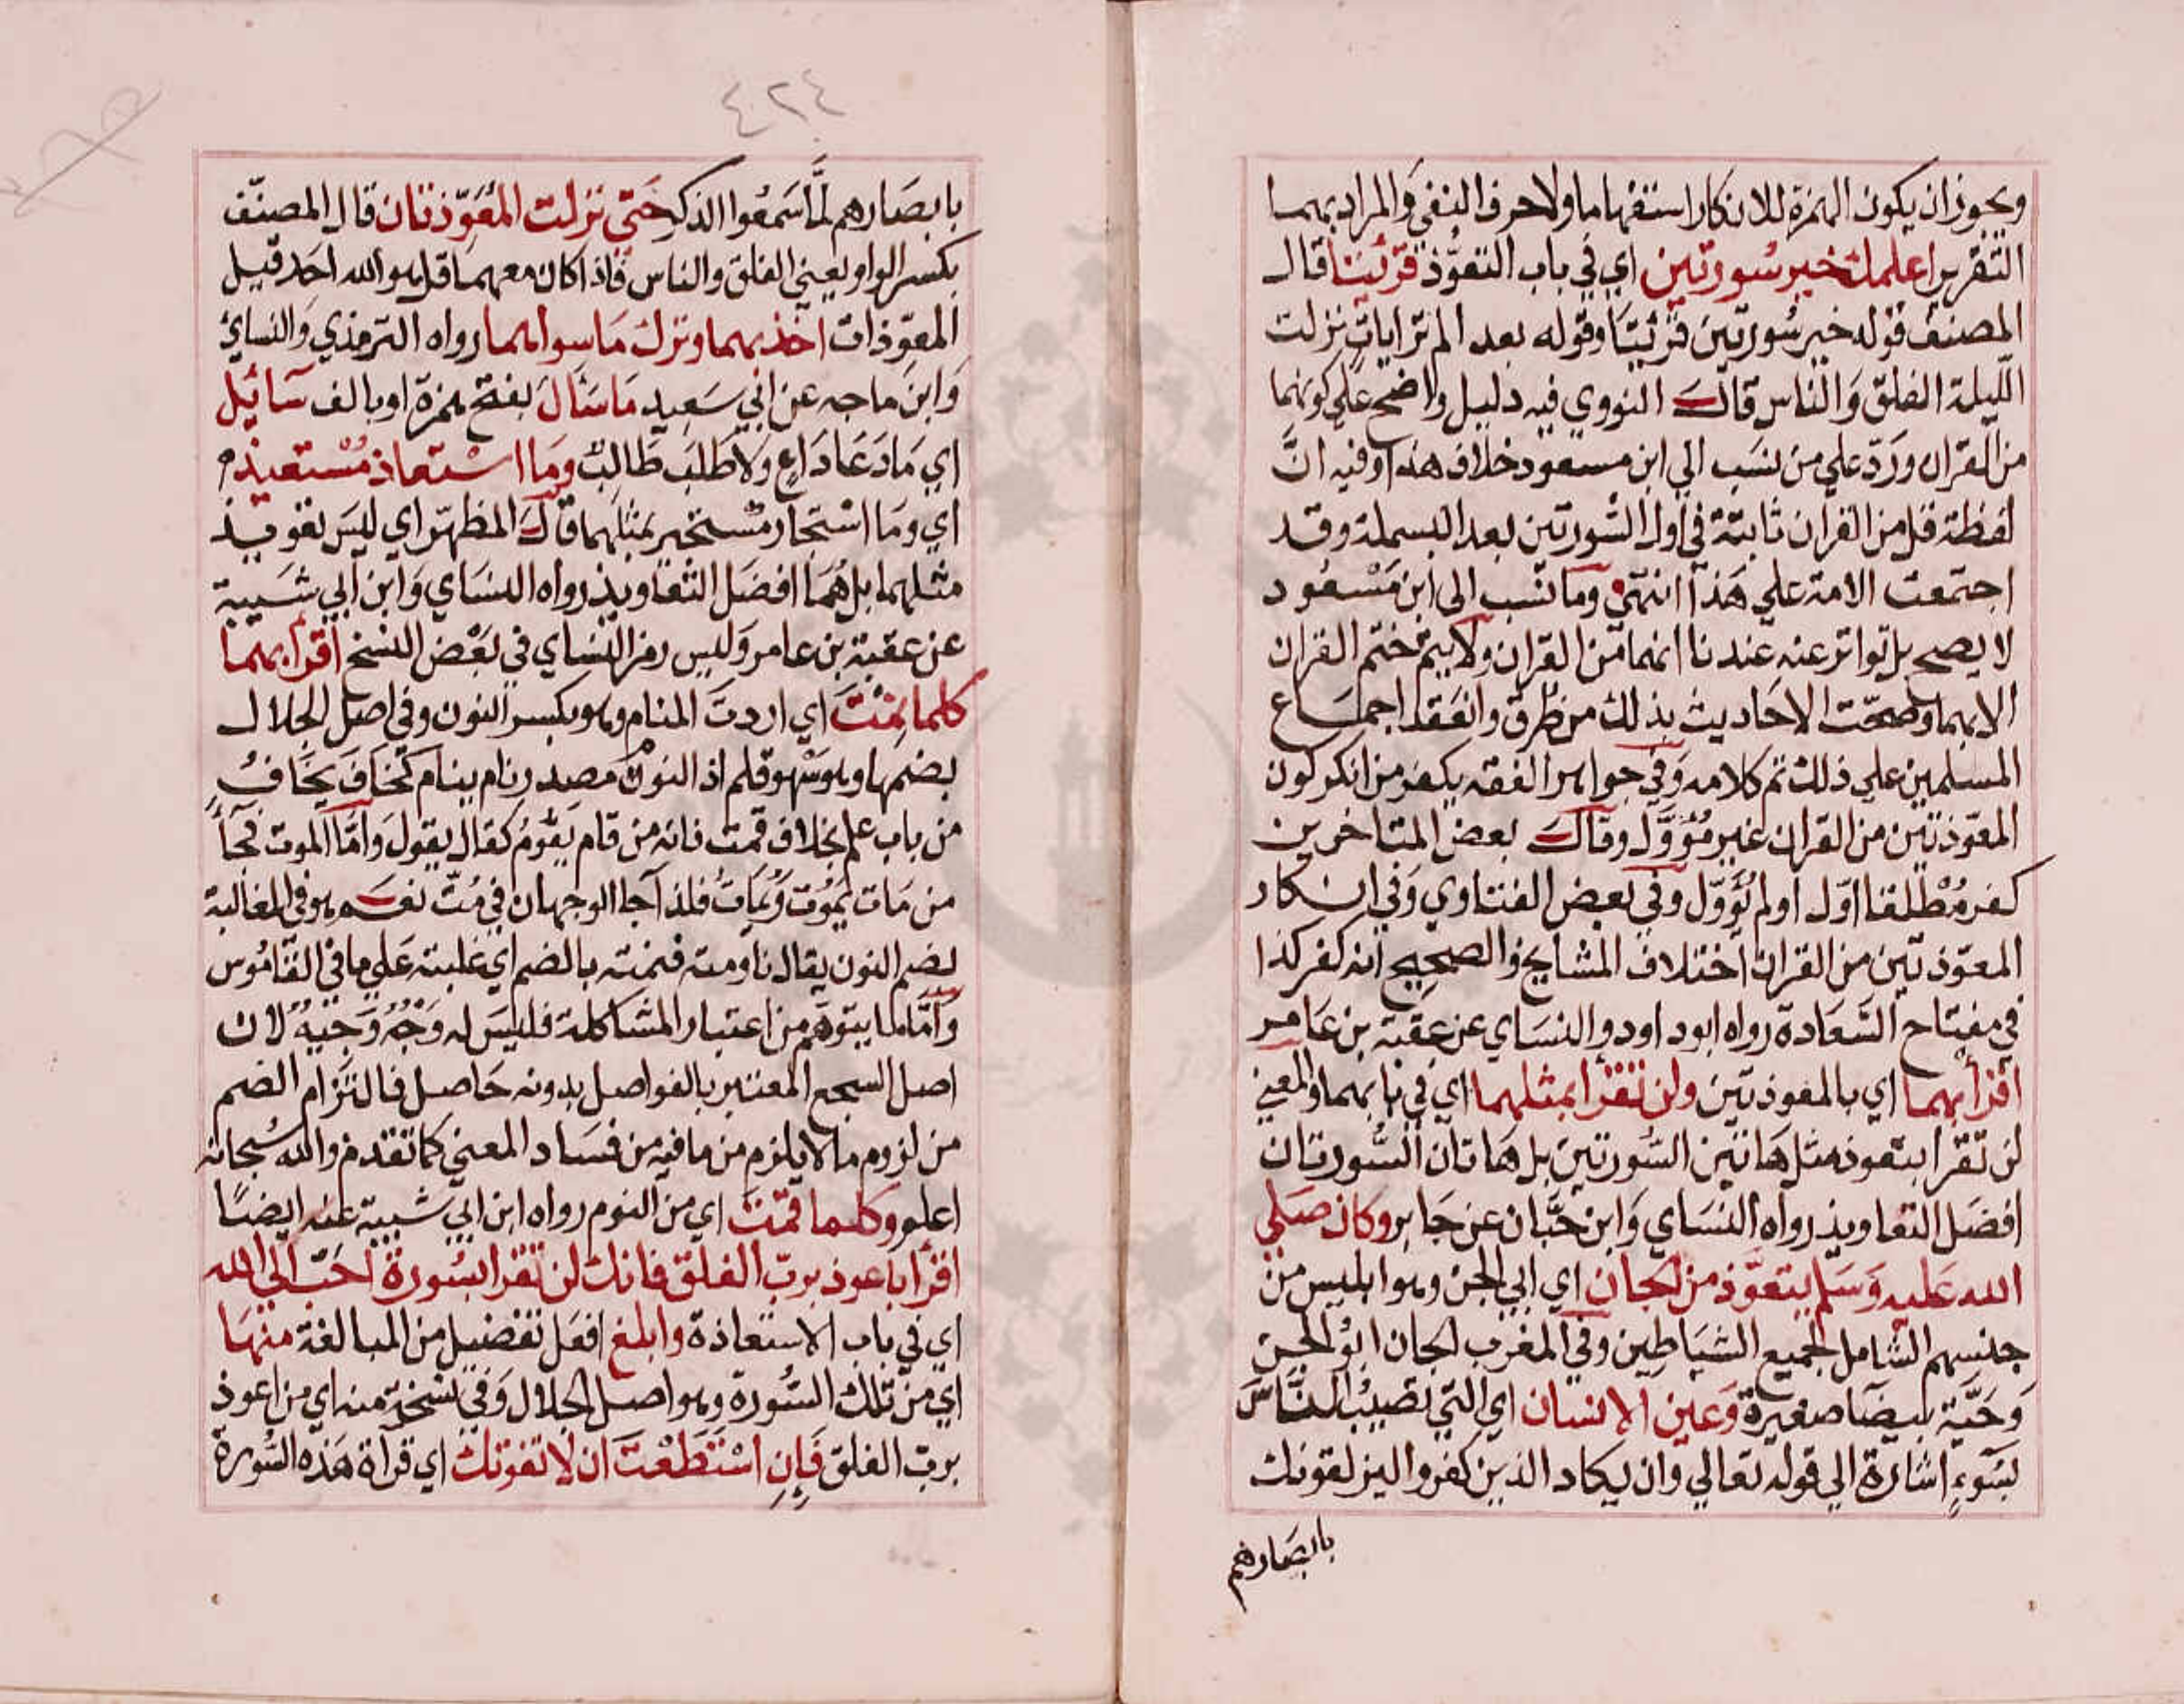 ويجوز ان يكون الهمزة للانكار استفهاما ولا حرف النفي والمراد بهما
التقرير اعلمك خير سورتين اي في باب التعوّذ قرئتا قال
المصنف قوله خير سورتين قرئتا وقوله بعد الم تر ايات نزلت
الليلة الفلق والناس قال النووي فيه دليل واضح علي كونهما
من القران وردّ علي من نسب الي ابن مسعود خلاف هذا وفيه انّ
لفظة قل من القران ثابتة في اول السّورتين بعد البسملة وقد
اجتمعت الامة علي هذا انتهي وما نسب الى ابن مسعود
لا يصح بل تواتر عنه عندنا انهما من القران ولا يتم ختم القران
الا بهما وصحّت الاحاديث بذلك من طرق وانعقد اجماع
المسلمين علي ذلك تم كلامه وفي جواهر الفقه يكفر من انكر كون
المعوّذتين من القران غير مُؤوّل وقال بعض المتاخرين
كفر مُطْلقا اوّل او لم يُؤوّل وفي بعض الفتاوي وفي انكار
المعوّذتين من القران اختلاف المشايخ والصحيح انه كفر كذا
في مفتاح السّعادة رواه ابو داود والنسَاي عن عقبة بن عامر
اقرأ بهما اي بالمعوذتين ولن تقرأ بمثلهما اي في بابهما والمعني
لن تقرا بتعوذ مثل هاتين السّورتين بل هاتان السُّورتان
افضل التعاويذ رواه النسَاي وابن حبّان عن جابر وكان صَلي
الله عَليه وَسَلم يتعوّذ من الجان اي ابي الجن وهو ابليس من
جنسهم الشامل لجميع الشياطين وفي المغرب الجان ابو الجن
وَحَيّة بيضا صغيرة وَعين الانسان اي التي تصيب الناسَ
بسَوءٍ اشارة الي قوله تعالي وان يكاد الذين كفروا ليزلقونك
بابصارهم
٤٢٤
بابصَارهم لمَّا سَمعُوا الذكر حَتّي نزلت المُعَوّذتان قال المصنّف
بكسر الواو يعني الفلق والناس فاذا كان معهما قل هو الله احد قيل
المعوّذات اخذ بهما وترك مَا سواهما رواه الترمذي والنسائ
وَابن ماجه عن ابي سَعيد مَا سَال بفتح همزة او بالف سَائل
اي مَا دَعَا دَاعٍ ولا طلبَ طَالبٌ ومَا استعاذ مُسْتعيذ
اي ومَا اسْتجار مسْتجير بمثلهما قال المظهر اي ليسَ تعويذ
مثلهما بل هُمَا افضل التعاويذ رواه النسَاي وَابن ابي شَيبة
عن عقبة بن عامر وَليس رمز النسَاي في بَعْض النسخ اقرأ بهما
كلما نِمْتَ اي اردتَ المنام وهو بكسر النون وفي اصل الجلال
بضمها وهو سَهو قلم اذ النوم مَصدر نام ينام كخافَ يخافُ
من باب علم بخلاف قمت فانه من قام يقُوم كقال يقول وَامّا الموت فجآ
من مَات يَموُت وَيَمَاتُ فلذا جا الوجهان في مُتّ نعم هو في المغالبة
بضم النون يقال ناومته فنمته بالضم اي غلبته عَلي ما في القامُوس
وَامّا ما يتوهّم من اعتبار المشاكلة فليسَ له وَجْهٌ وَجيهٌ لان
اصل السجع المعتبر بالفواصل بدونه حَاصل فالتزام الضم
من لزوم ما لا يلزم من ما فيه من فسَاد المعني كما تقدم والله سُبحانه
اعلم وكلما قمْت اي من النوم رواه ابن ابي شيبة عنه ايضا
اقرأ باعوذ بربّ الفلق فانك لن تقرأ بسُورة احَبّ الي الله
اي في باب الاستعاذة وابلغ افعَل تفضيل من المبالغة منهَا
اي من تلك السُورة وهو اصل الجلال وَفي نسخة منه اي من اعوذ
بربّ الفلق فَاِنِ اسْتَطَعْتَ ان لا تفوتك اي قراة هذه السُورة